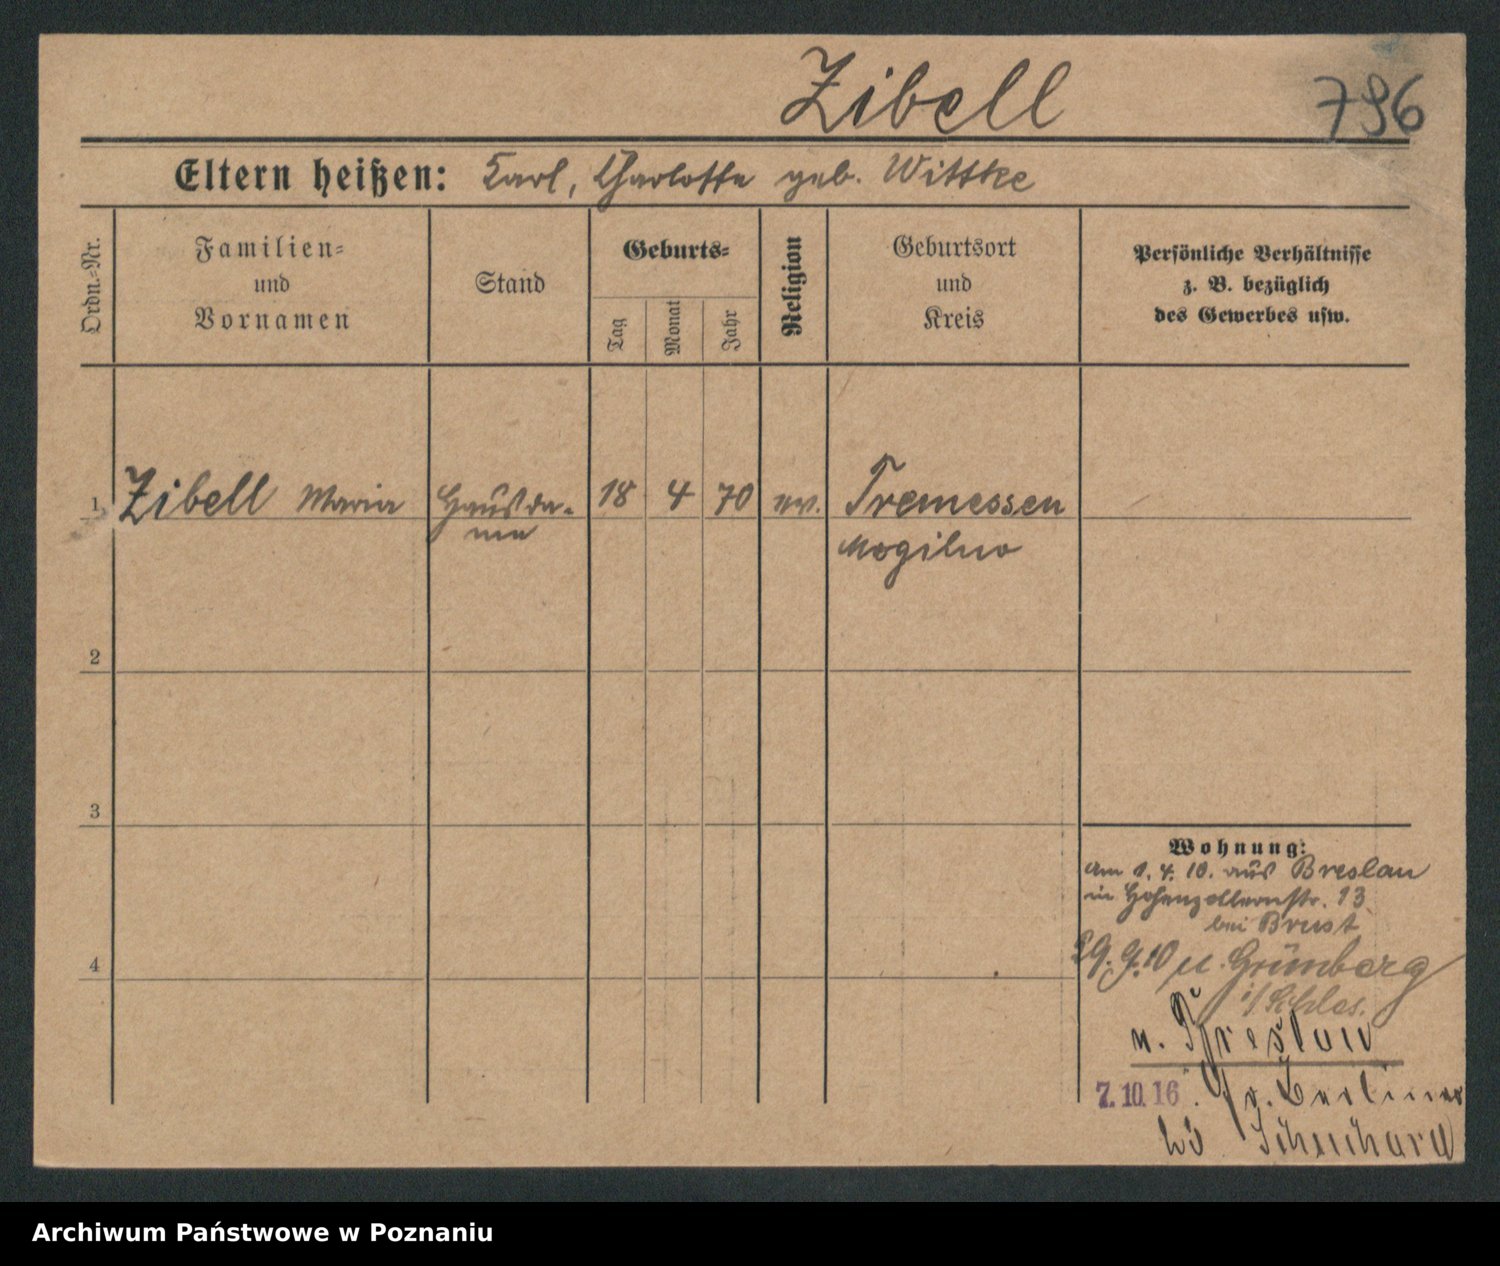 Zibell
796
Eltern heißen: Karl, Charlotte geb. Wittke
Ordn.-Nr.
Familien-
und
Vornamen
Stand
Geburts-
Tag
Monat
Jahr
Religion
Geburtsort
und
Kreis
Persönliche Verhältnisse
z. B. bezüglich
des Gewerbes usw.
1 Zibell Maria Hausda- 18 4 70 ev. Tremessen
me Mogilno
2
3
4
Wohnung:
Am 1. 4. 10. aus Breslau
in Hohenzollernstr. 13
bei Brust
29. 9. 10 n. Grünberg
i/Schles.
v. Breslau
7.10.16. Gr. Berliner
bei
Archiwum Państwowe w Poznaniu